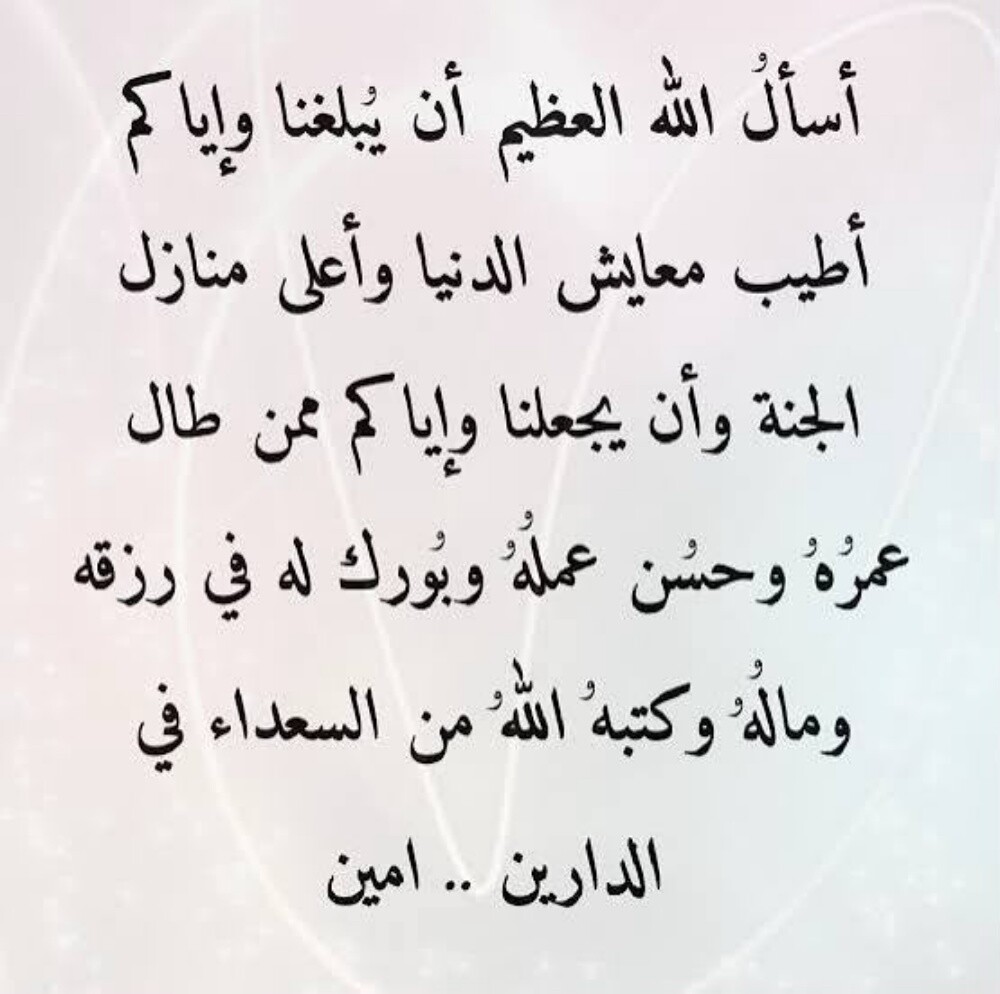 أسألُ الله العظيم أن يُبلغنا وإياكم
أطيب معايش الدنيا وأعلى منازل
الجنة وأن يجعلنا وإياكم ممن طال
عمرُهُ وحسُن عملُهُ وبُورك له في رزقه
ومالُهُ وكتبهُ اللهُ من السعداء في
الدارين .. امين